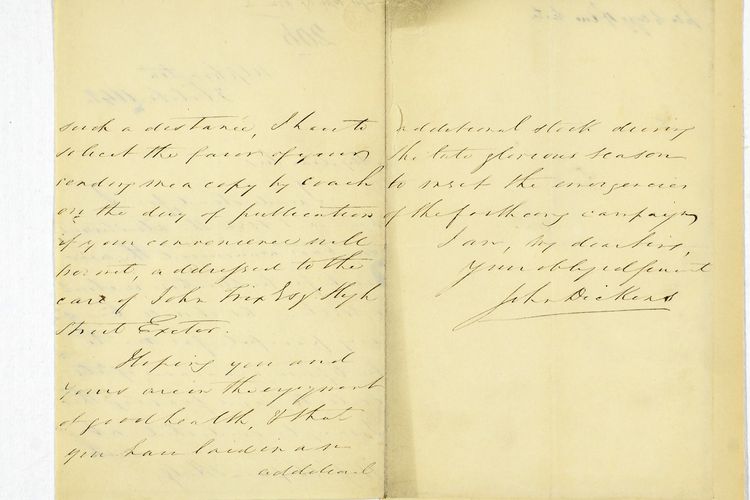 such a distance, I have to
solicit the favor of your
sending me a copy by coach
on the day of publication
if your convenience will
permit, addressed to the
care of John Esqr High
Street Exeter.
Hoping you and
yours are in the enjoyment
of good health, & that
you have laid in an
additional
additional stock during
the late glorious season
to meet the emergencies
of the forthcoming campaign
I am, my dear Sir,
your obliged Servant
John Dickens